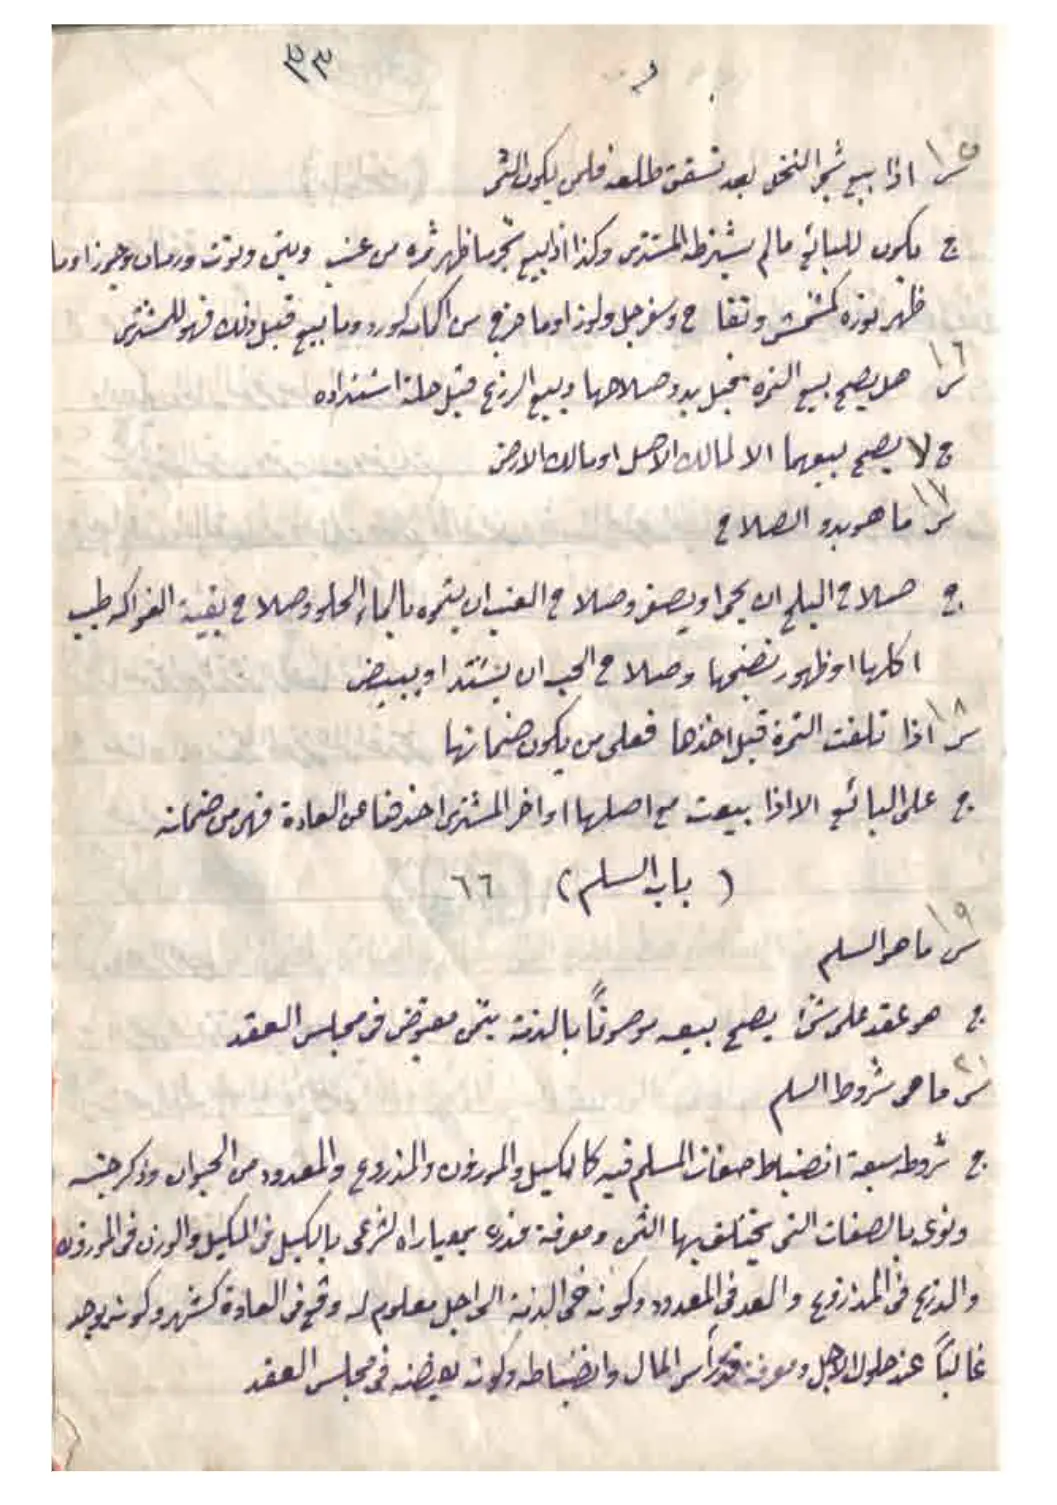 ٩٣
١٥ س اذا بيع شجر النخل بعد تشقق طلعه فلمن يكون الثمر
ج يكون للبائع مالم يشترطه المشتري وكذا اذا بيع شجر ما ظهر ثمره من عنب وتين وتوت ورمان وجوز او ما
ظهر نوره كمشمش وتفاح وسفرجل ولوز او ما خرج من اكمامه كورد وما بيع قبل ذلك فهو للمشتري
١٦ س هل يصح بيع الثمره قبل بدو صلاحها وبيع الزرع قبل اشتداده
ج لا يصح بيعهما الا لمالك الاصل او مالك الارض
١٧ س ما هو بدو الصلاح
ج صلاح البلح ان يحمر او يصفر وصلاح العنب ان يتموه بالماء الحلو وصلاح بقية الفواكه طيب
اكلها او ظهور نضجها وصلاح الحب ان يشتد او يبيض
١٨ س اذا تلفت الثمرة قبل اخذها فعلى من يكون ضمانها
ج على البائع الا اذا بيعت مع اصلها او اخر المشتري اخذها عن العادة فهي من ضمانه
( باب السلم ) ٦٦
١٩ س ما هو السلم
ج هو عقد على شئ يصح بيعه موصوفاً بالذمة بثمن مقبوض في مجلس العقد
س ما هي شروط السلم
ج شروطه سبعة انضباط صفات المسلم فيه كالمكيل والموزون والمذروع والمعدود من الحيوان وذكر جنسه
ونوعه بالصفات التي يختلف بها الثمن ومعرفة قدره بمعياره الشرعي بالكيل في المكيل والوزن في الموزون
والذرع في المذروع والعد في المعدود وكونه في الذمة الى اجل معلوم له وقع في العادة كشهر وكونه يوجد
غالباً عند حلول الاجل ومعرفة قدر رأس المال وانضباطه وكونه يقبضه في مجلس العقد